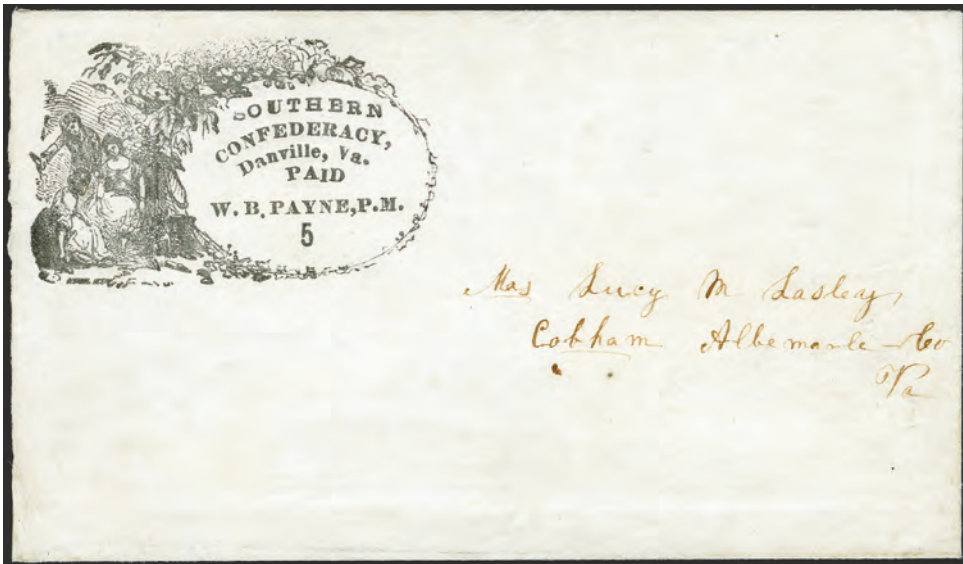 SOUTHERN
CONFEDERACY,
Danville, Va.
PAID
W. B. PAYNE, P.M.
5
Mrs Lucy M Lasley,
Cobham Albemarle Co
Va